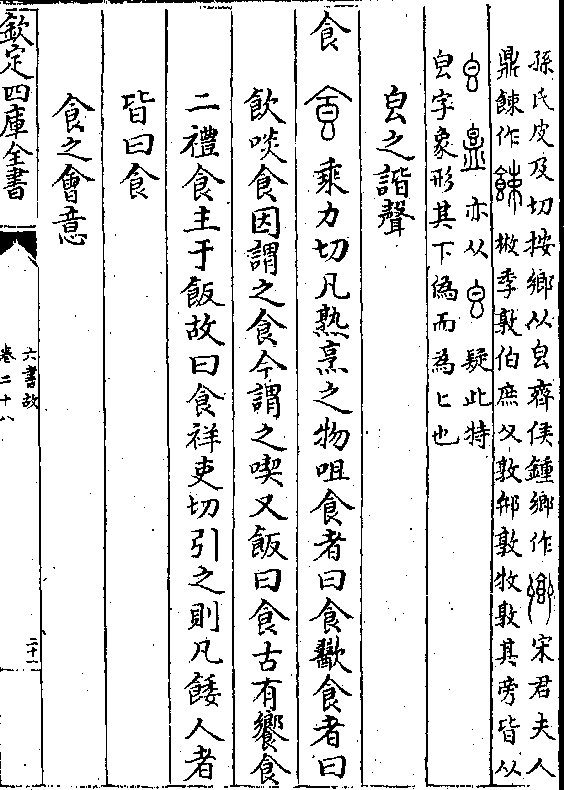 孫氏皮及切按鄉从皀齊侯鍾鄉作宋君夫人
鼎餗作㮤季敦伯庶父敦邢敦牧敦其旁皆从
亦从疑此特
皀字象形其下偽而為匕也
皀之諧聲
食 乘力切凡熟烹之物咀食者曰食歠食者曰
飲啖食因謂之食今謂之喫又飯曰食古有饗食
二禮食主于飯故曰食祥吏切引之則凡餧人者
皆曰食
食之會意
欽定四庫全書
六書故
卷二十八
二十一